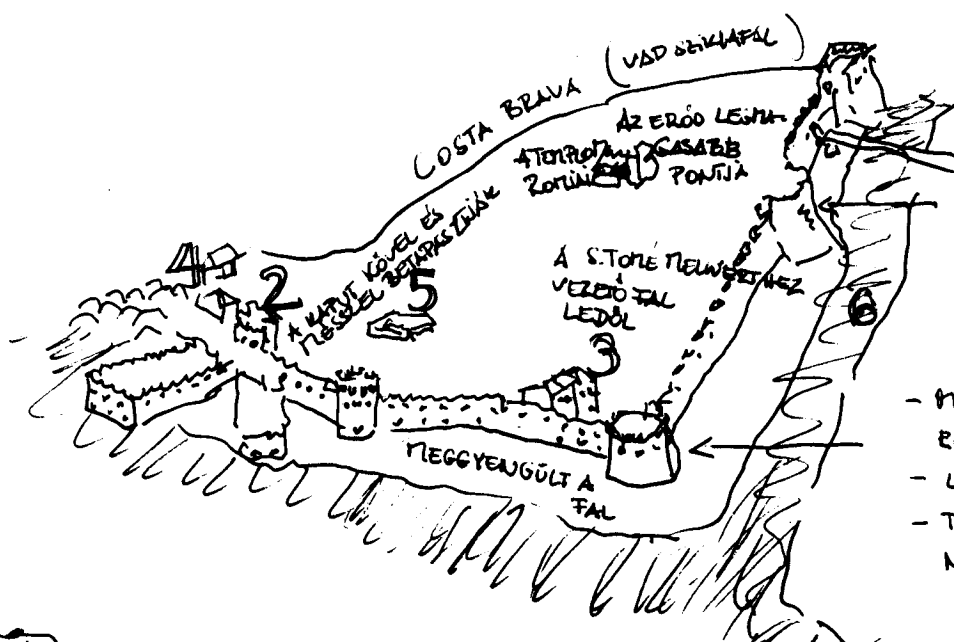 COSTA BRAVA (VAD SZIKLAFAL)
AZ ERŐD LEGMA-
GASABB
PONTJA
A TEMPLOM
ROMJAI
A KAPUT KŐVEL ÉS
MÉSSZEL BETAPASZTJÁK
4
2
5
A S. TOMÉ
VEZETŐ FAL
LEDŐL
3
6
MEGGYENGÜLT A
FAL
-
-
- T